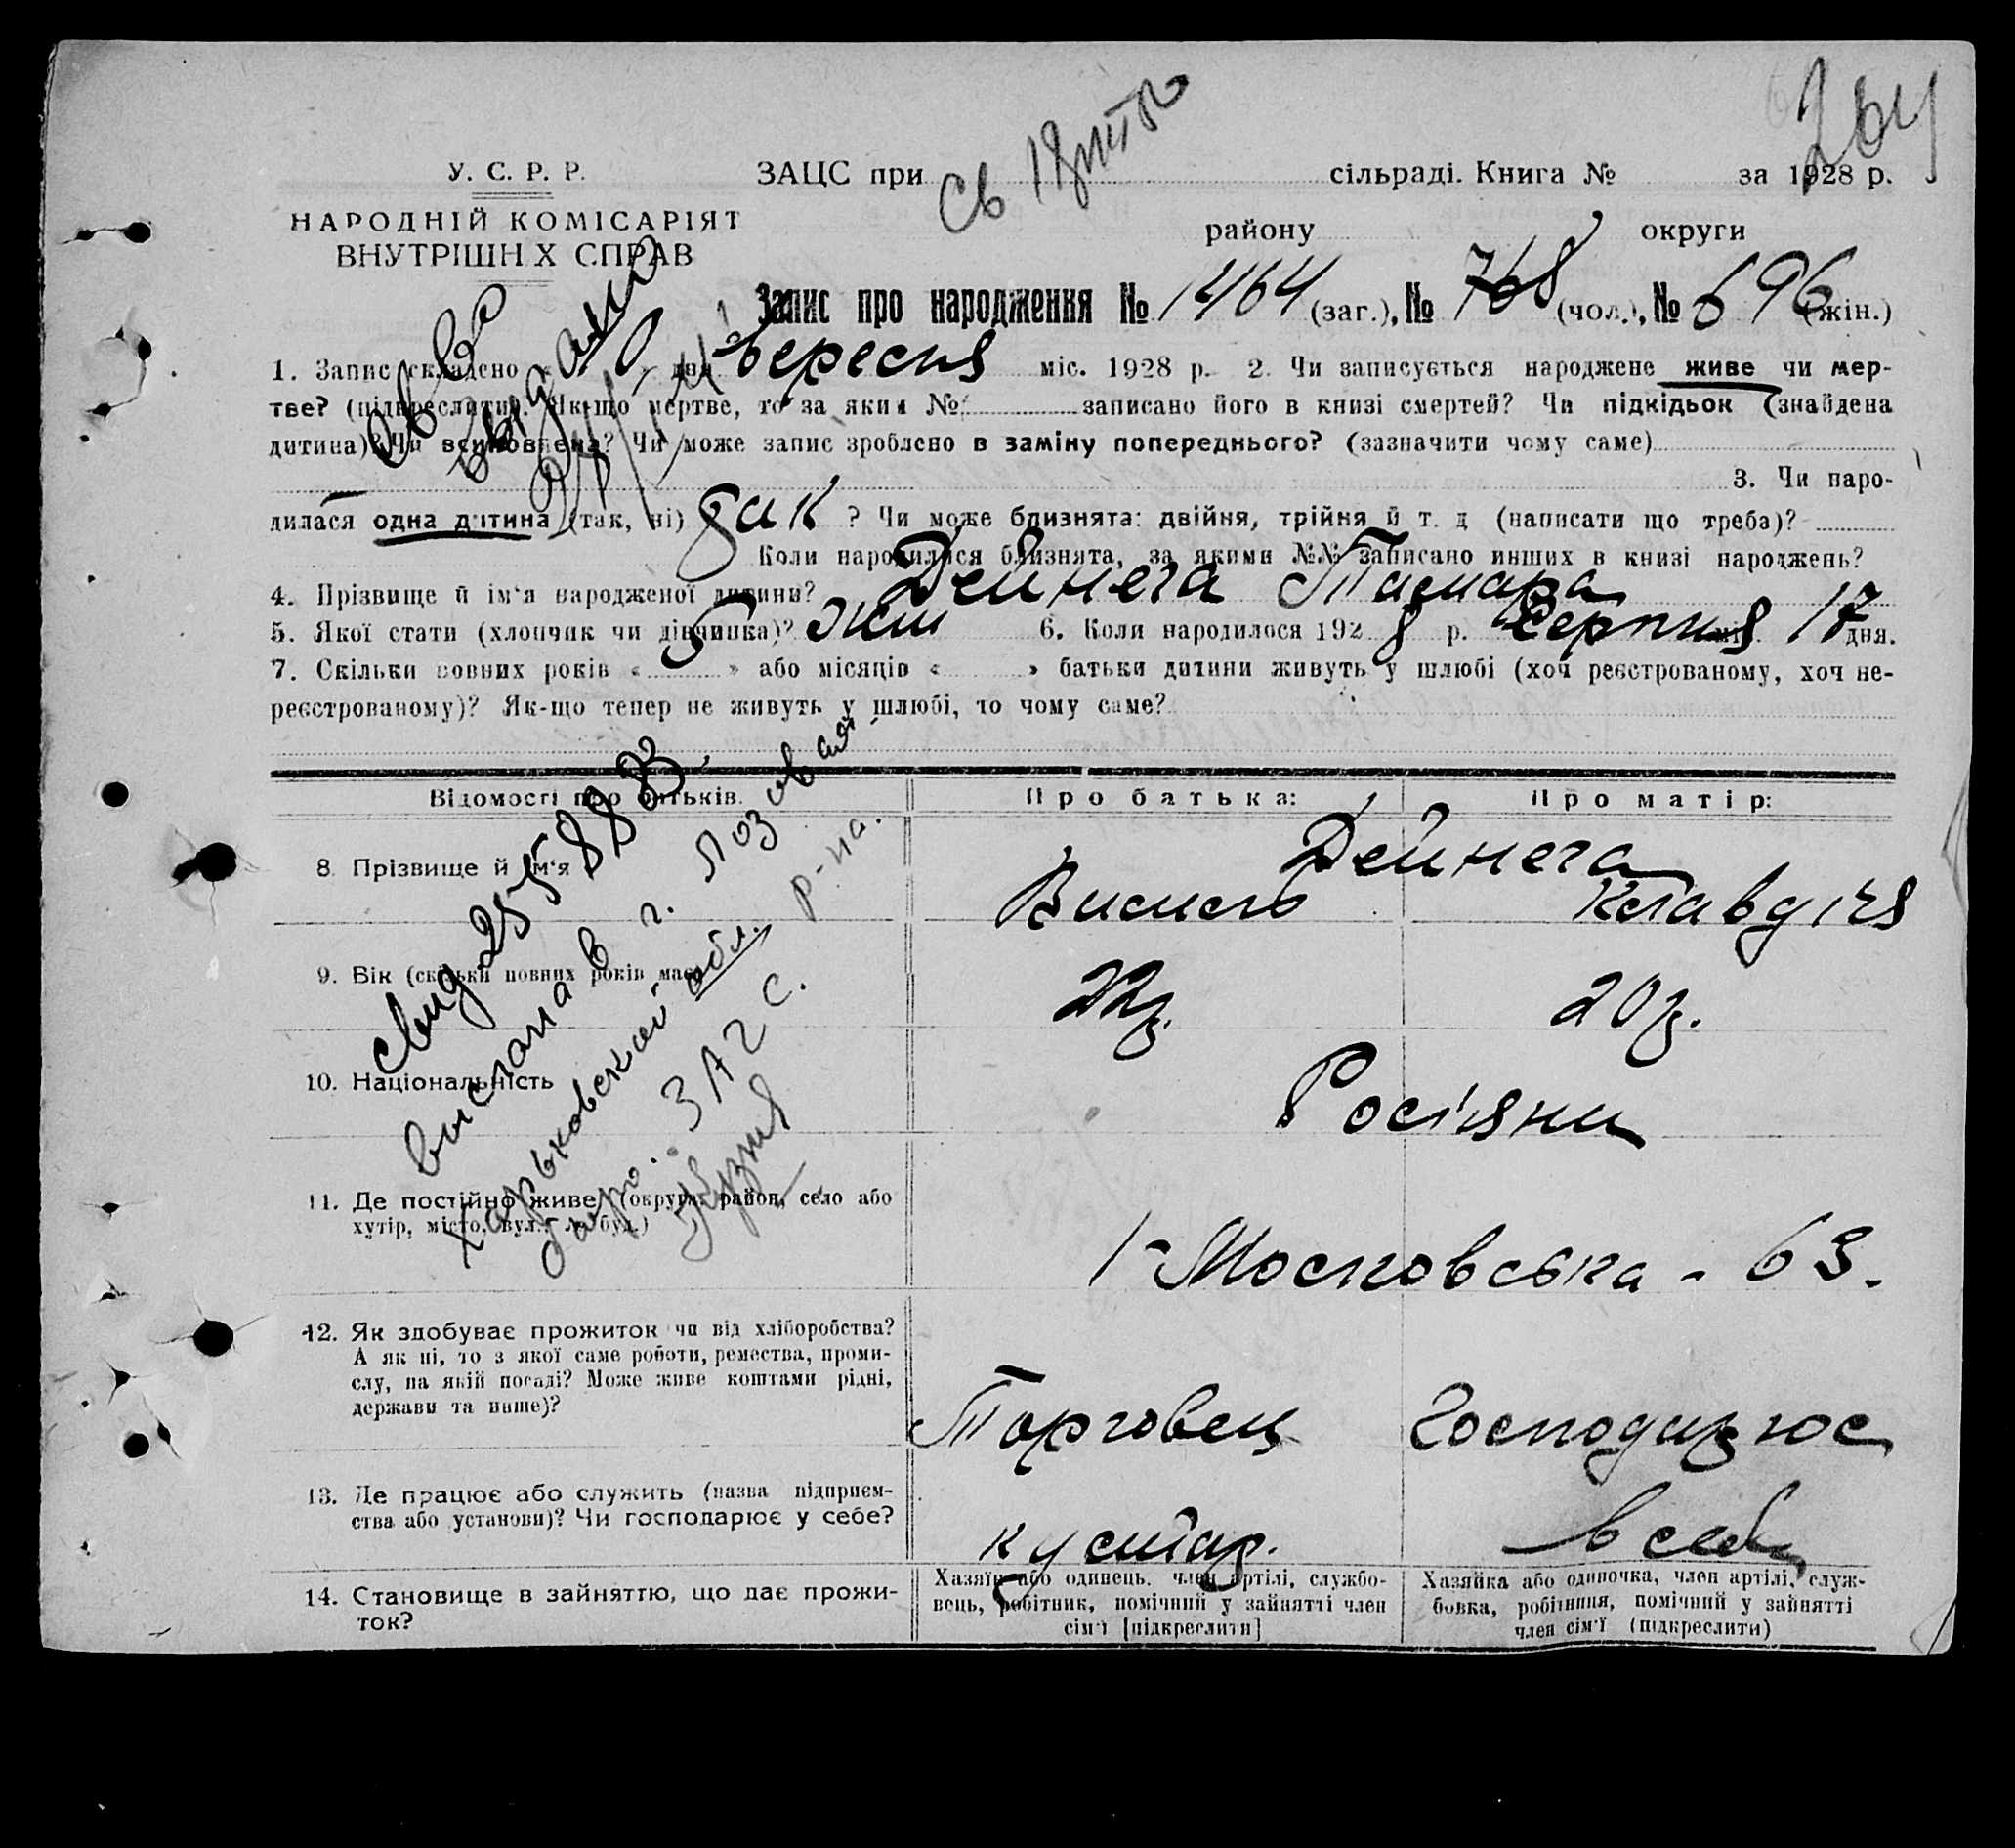 264
У. С. Р. Р.
ЗАЦС при сільраді. Книга № за 1928 р.
НАРОДНІЙ КОМІСАРІЯТ
ВНУТРІШН Х СПРАВ
району округи
Запис про народження № 1464 (заг.), № 768 (чол.), № 696 (жін.)
1. Запис складено « 10 » дня вересня міс. 1928 р. 2. Чи записується народжене живе чи мер-
тве? (підкреслити). Як-що мертве, то за яким № записано його в книзі смертей? Чи підкідьок (знайдена
дитина)? Чи всиновлена? Чи може запис зроблено в заміну попереднього? (зазначити чому саме)
3. Чи наро-
дилася одна дитина (так, ні) так ? Чи може близнята: двійня, трійня й т. д (написати що треба)?
Коли народилося близнята, за якими №№ записано инших в книзі народжень?
4. Прізвище й ім‘я народженої дитини? Дейнега Тамара
5. Якої стати (хлопчик чи дівчинка)? жін 6. Коли народилося 1928 р. Серпня міс. 17 дня.
7. Скільки повних років « » або місяців « » батьки дитини живуть у шлюбі (хоч реєстрованому, хоч не-
реєстрованому)? Як-що тепер не живуть у шлюбі, то чому саме?
Відомості про батьків.
Про батька:
Про матір:
8. Прізвище й ім‘я
Дейнега
Клавдія
9. Вік (скільки повних років має)
22р.
20р.
10. Національність
Росіяни
11. Де постійно живе (округа, район, село або
хутір, місто, вул., № буд.)
1-Московська - 63.
12. Як здобуває прожиток чи від хліборобства?
А як ні, то з якої саме роботи, ремества, проми-
слу, на якій посаді? Може живе коштами рідні,
держави та инше)?
Торговец
Господарює
13. Де працює або служить (назва підприєм-
ства або установи)? Чи господарює у себе?
кустар.
в себе
14. Становище в зайняттю, що дає прожи-
ток?
Хазяїн або одинець, член артілі, службо-
вець, робітник, помічний у зайнятті член
сім‘ї [підкреслити]
Хазяйка або одиночка, член артілі, служ-
бовка, робітниця, помічний у зайнятті
член сім‘ї (підкреслити)
свид 255883
выслана в г. Лозовая
Харьковской обл. р-на.
ЗАГС.